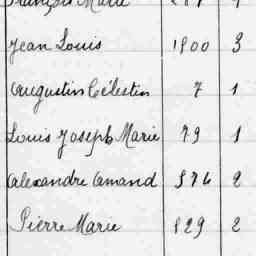 François Marie
Jean Louis 1900 3
Augustin Célestin 7 1
Louis Joseph Marie 79 1
Alexandre Amand 576 2
Pierre Marie 829 2